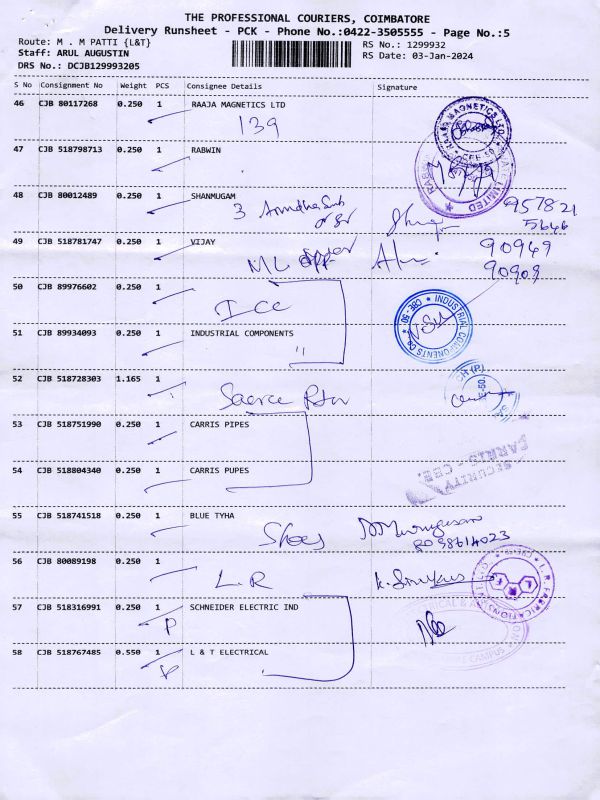 THE PROFESSIONAL COURIERS, COIMBATORE
Delivery Runsheet - PCK - Phone No.:0422-3505555 - Page No.:5
Route: M . M PATTI {L&T}
RS No.: 1299932
Staff: ARUL AUGUSTIN
RS Date: 03-Jan-2024
DRS No.: DCJB129993205
S No Consignment No Weight PCS Consignee Details Signature
46 CJB 80117268 0.250 1 RAAJA MAGNETICS LTD
139
47 CJB 518798713 0.250 1 RABWIN
48 CJB 80012489 0.250 1 SHANMUGAM
3
957821
5646
49 CJB 518781747 0.250 1 VIJAY
ML
90949
90909
50 CJB 89976602 0.250 1
ICC
INDUSTRIAL COMPONENTS CBE - 50
51 CJB 89934093 0.250 1 INDUSTRIAL COMPONENTS
"
52 CJB 518728303 1.165 1
53 CJB 518751990 0.250 1 CARRIS PIPES
54 CJB 518804340 0.250 1 CARRIS PUPES
SECURITY
CARRIS - CBE.
55 CJB 518741518 0.250 1 BLUE TYHA
Shoes
8098614023
56 CJB 80089198 0.250 1
L.R
57 CJB 518316991 0.250 1 SCHNEIDER ELECTRIC IND
P
58 CJB 518767485 0.550 1 L & T ELECTRICAL
P